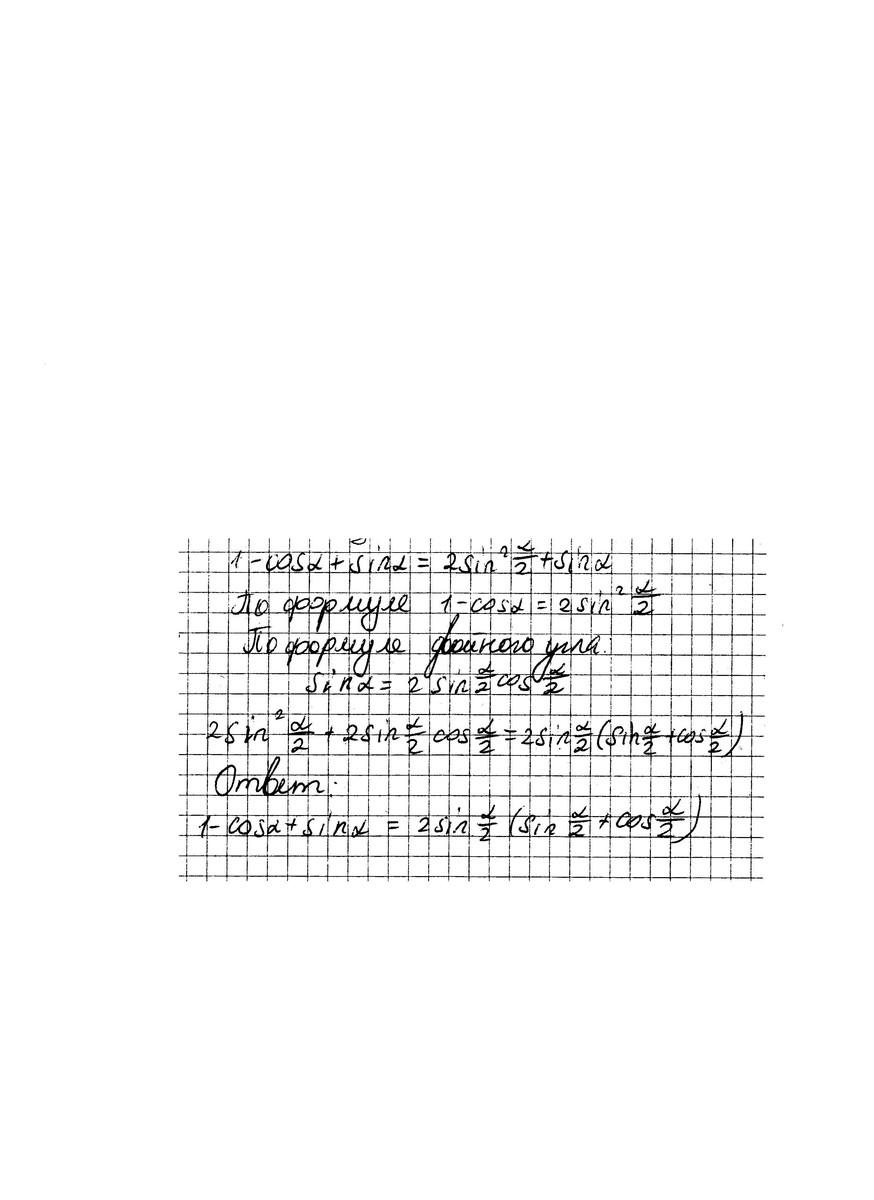 1 - cosα + sinα = 2sin² α/2 + sinα
По формуле 1 - cosα = 2 sin² α/2
По формуле двойного угла:
sinα = 2 sin α/2 cos α/2
2sin² α/2 + 2sin α/2 cos α/2 = 2sin α/2 (sin α/2 + cos α/2)
Ответ:
1 - cosα + sinα = 2 sin α/2 (sin α/2 + cos α/2)